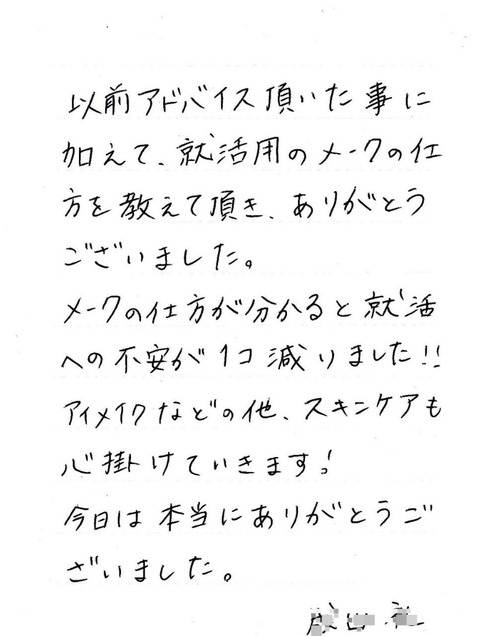 以前アドバイス頂いた事に
加えて、就活用のメークの仕
方を教えて頂き、ありがとう
ございました。
メークの仕方が分かると就活
への不安が1コ減りました!!
アイメイクなどの他、スキンケアも
心掛けていきます!
今日は本当にありがとうご
ざいました。